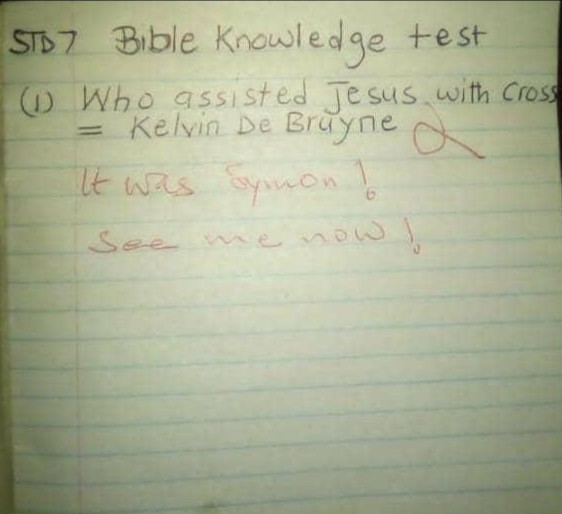 STD 7 Bible Knowledge test
(1) Who assisted Jesus with Cross
= Kelvin De Bruyne
It was Symon!
See me now!